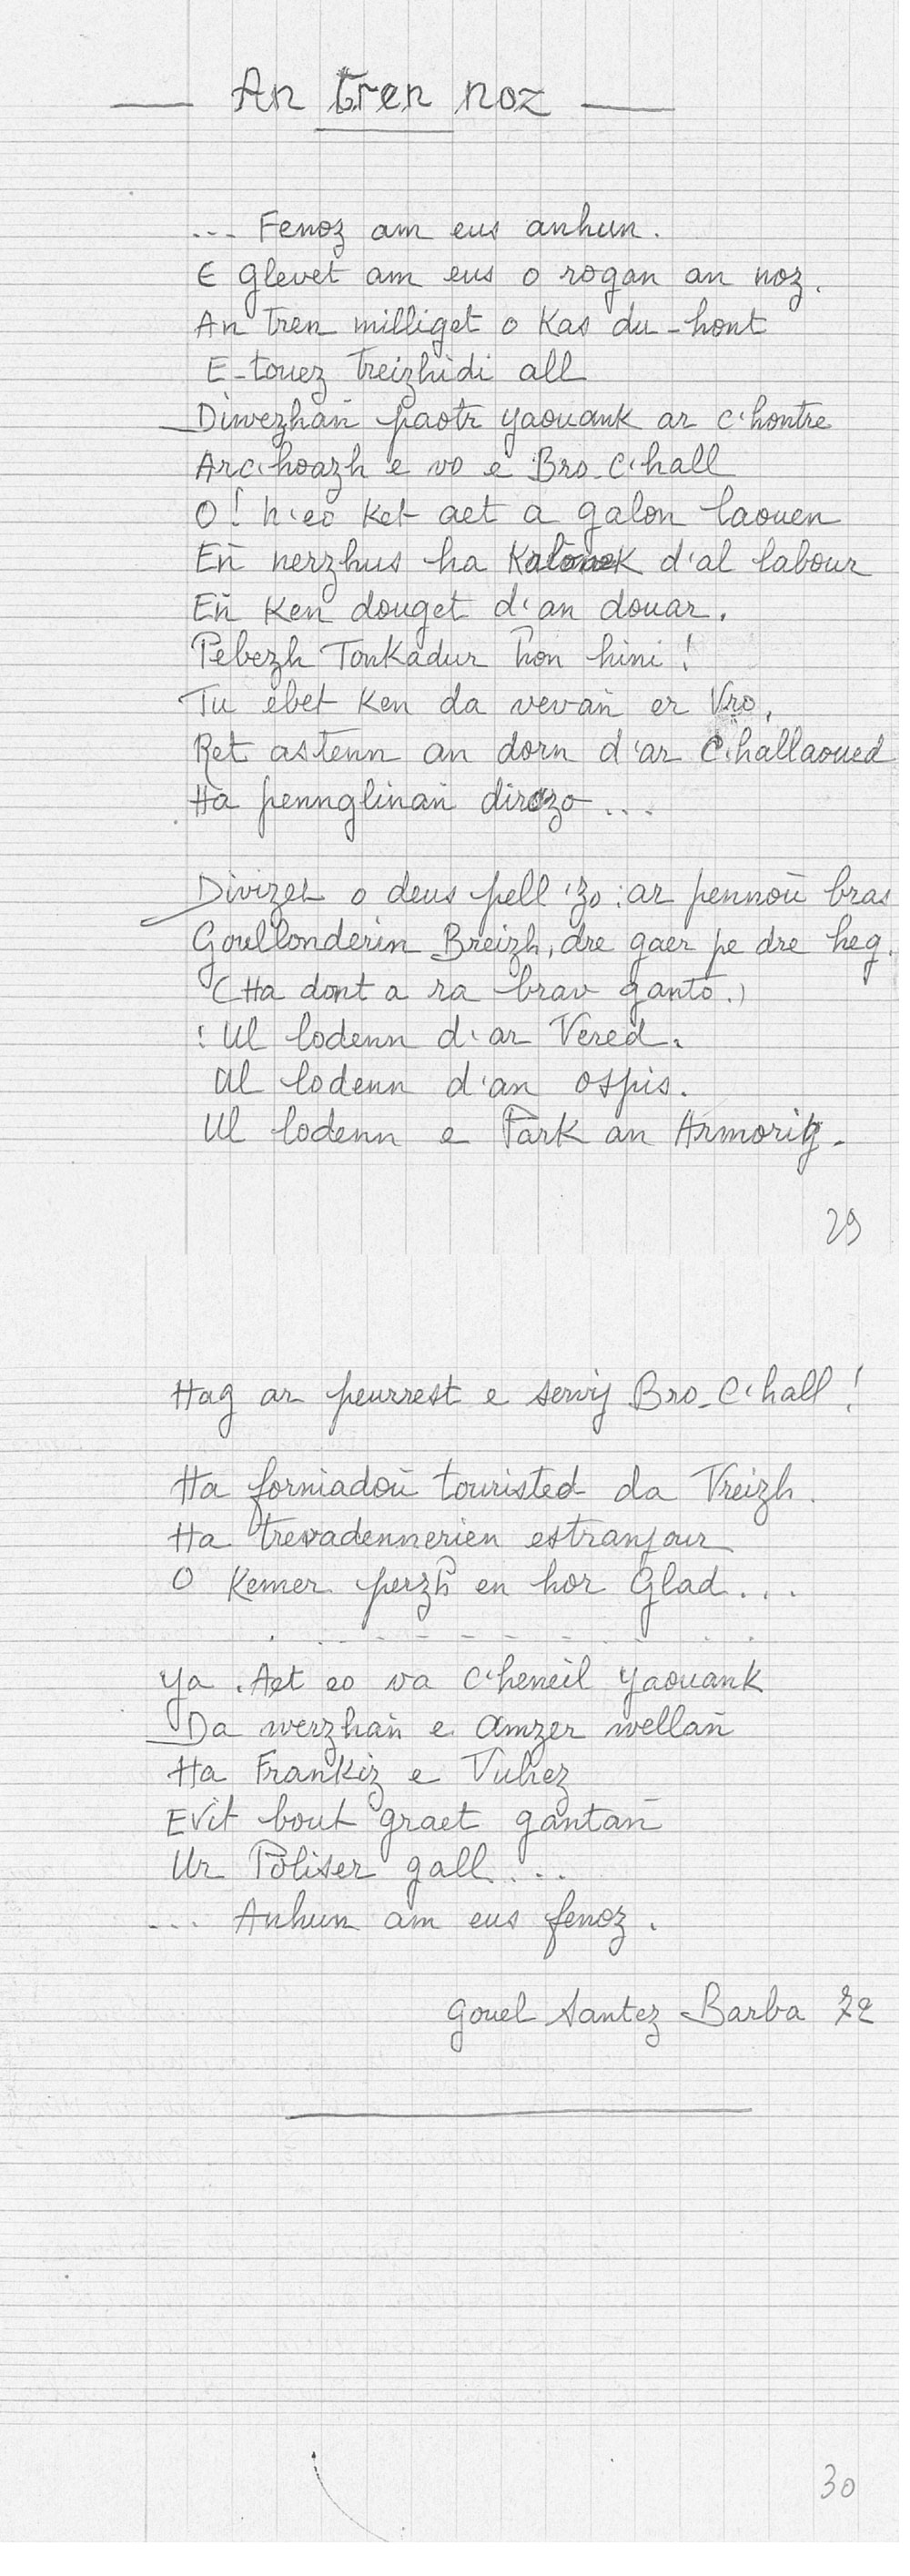 An tren noz
... Fenoz am eus anhun.
E glevet am eus o rogan an noz.
An Tren milliget o kas du-hont
E-touez Treizhidi all
Diwezhañ paotr yaouank ar c'hontre
Arc'hoazh e vo e Bro-C'hall
O! n'eo ket aet a galon laouen
Eñ nerzhus ha kalonek d'al labour
Eñ ken douget d'an douar.
Pebezh Tonkadur hon hini!
Tu ebet ken da vevañ er Vro,
Ret astenn an dorn d'ar C'hallaoued
Ha pennglinañ dirazo ...
Divizet o deus pell 'zo: ar pennoù bras
Goullonderiñ Breizh, dre gaer pe dre heg.
(Ha dont a ra brav ganto.)
: Ul lodenn d'ar Vered.
Ul lodenn d'an ospis.
Ul lodenn e Park an Armorig.
29
Hag ar peurrest e servij Bro-C'hall!
Ha forniadoù touristed da Vreizh.
Ha trevadennerien estranjour
O kemer perzh en hor Glad...
Ya. Aet eo va c'heneil yaouank
Da werzhañ e amzer wellañ
Ha Frankiz e Vuhez
Evit bout graet gantañ
Ur Poliser gall....
... Anhun am eus fenoz.
Gouel Santez Barba 72
30